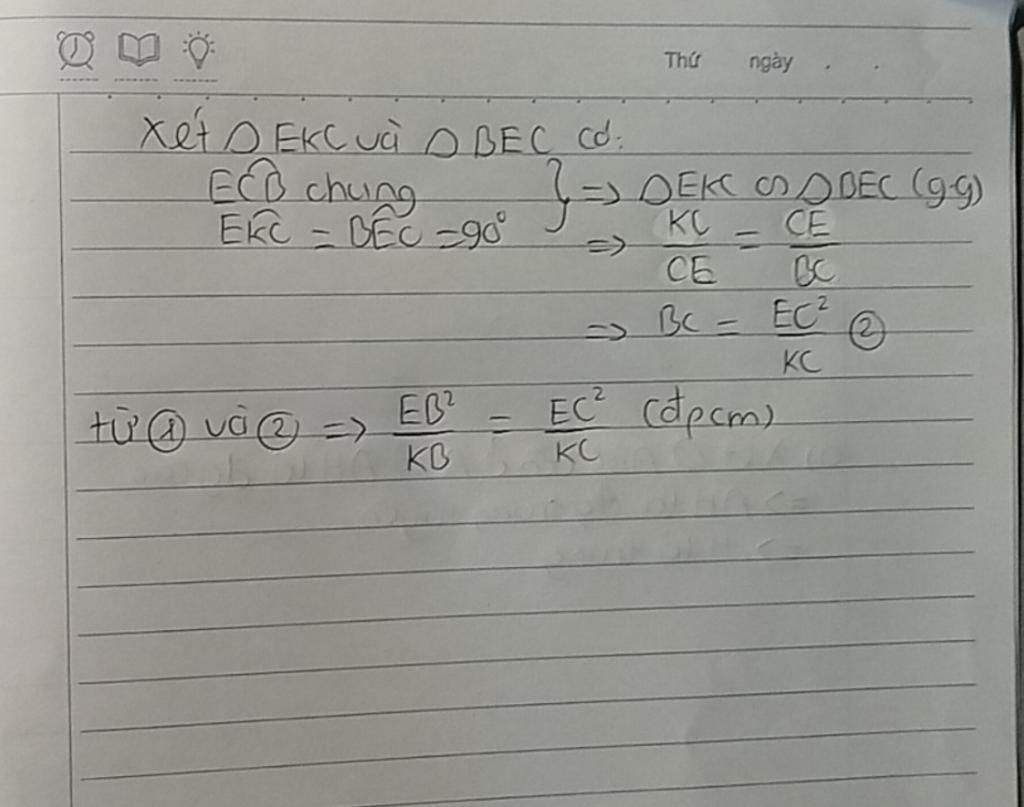 Thứ ngày . .
Xét △ EKC và △ BEC có:
ECB̂ chung } => △EKC ∽ △BEC (g-g)
EK̂C = BÊC = 90° => KC/CE = CE/BC
=> BC = EC²/KC ②
từ ① và ② => EB²/KB = EC²/KC (đpcm)